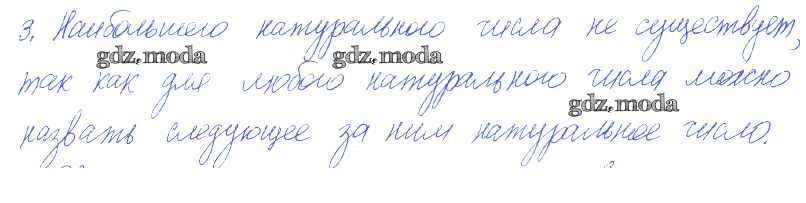 3. Наибольшего натурального числа не существует,
gdz.moda gdz.moda
так как для любого натурального числа можно
gdz.moda
назвать следующее за ним натуральное число.